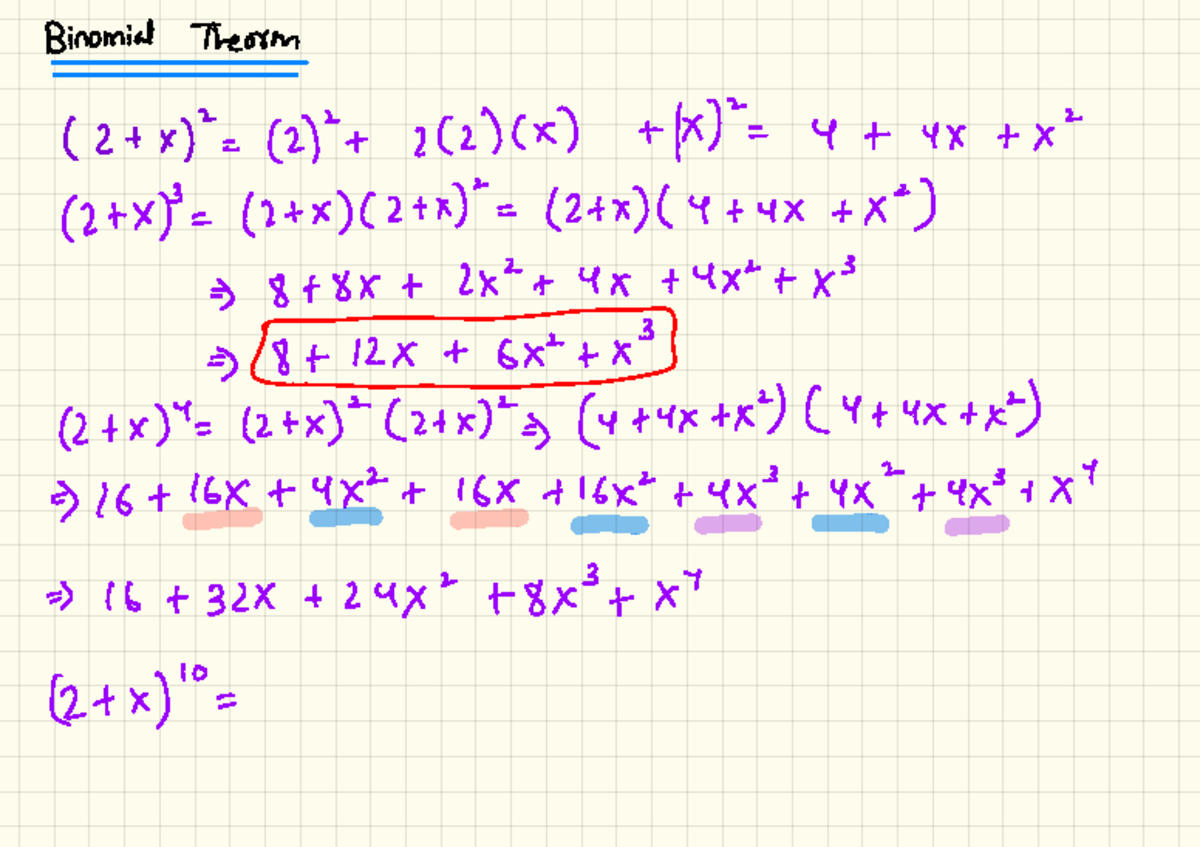 Binomial Theorm
(2+x)² = (2)² + 2(2)(x) + (x)² = 4 + 4x + x²
(2+x)³ = (2+x)(2+x)² = (2+x)(4 + 4x + x²)
⇒ 8 + 8x + 2x² + 4x + 4x² + x³
⇒ 8 + 12x + 6x² + x³
(2+x)⁴ = (2+x)² (2+x)² ⇒ (4 + 4x + x²) (4 + 4x + x²)
⇒ 16 + 16x + 4x² + 16x + 16x² + 4x³ + 4x² + 4x³ + x⁴
⇒ 16 + 32x + 24x² + 8x³ + x⁴
(2+x)¹⁰ =